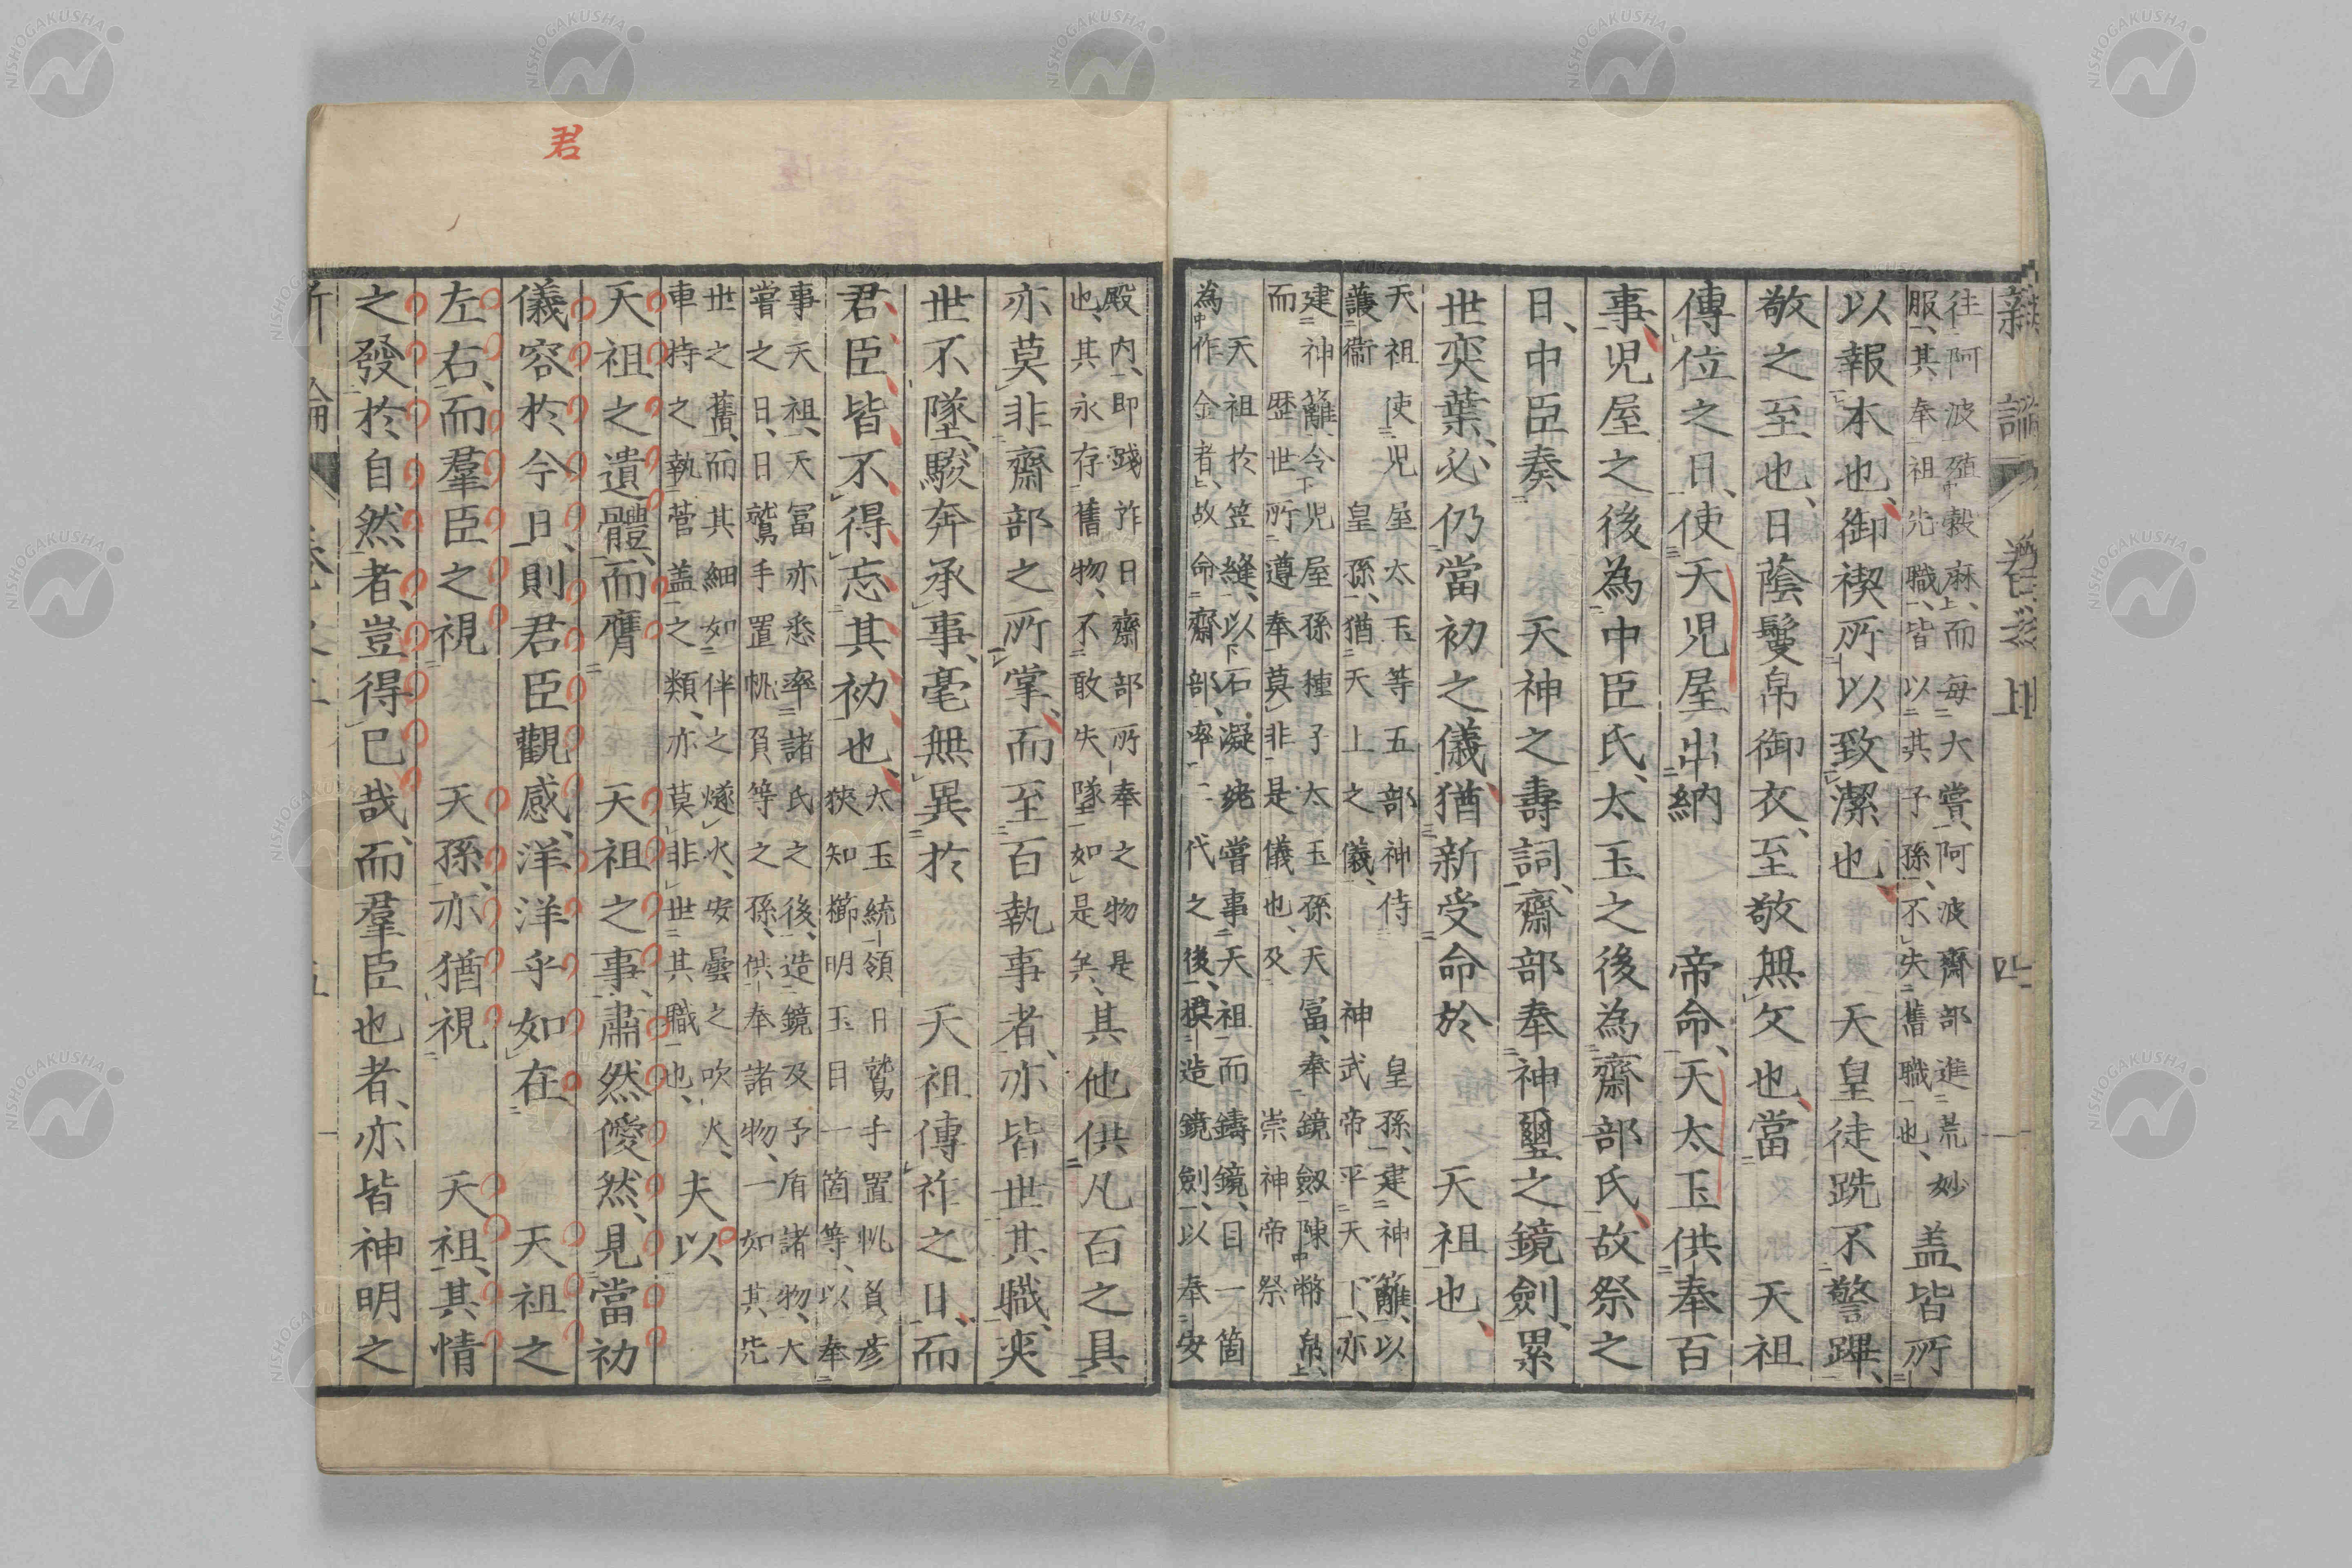 新論 卷之上 四
往阿波殖穀麻、而每大嘗、阿波齋部進荒妙
服、其奉祖先職、皆以其子孫、不失舊職也、
蓋皆所
以報本也、御禊所以致潔也、 天皇徒跣不警蹕、
敬之至也、日蔭鬘帛御衣、至敬無文也、當 天祖
傳位之日、使天兒屋出納 帝命、天太玉供奉百
事、兒屋之後為中臣氏、太玉之後為齋部氏、故祭之
日、中臣奏 天神之壽詞、齋部奉神璽之鏡劍、累
世奕葉、必仍當初之儀、猶新受命於 天祖也、
天祖使兒屋太玉等五部神侍 皇孫、建神籬、以
護衞 皇孫、猶天上之儀、 神武帝平天下、亦
建神籬、令兒屋孫種子太玉孫天富、奉鏡劔陳幣帛、
而歷世所遵奉、莫非是儀也、及 崇神帝祭
天祖於笠縫、以石凝姥嘗事天祖而鑄鏡、目一箇
為作金者、故命齋部、率二代之後、模造鏡劍、以奉安
殿內、即踐祚日齋部所奉之物是
也、其永存舊物、不敢失墜如是矣、
其他供凡百之具
亦莫非齋部之所掌、而至百執事者、亦皆世其職、奕
世不墜、駿奔承事、毫無異於 天祖傳祚之日、而
君臣皆不得忘其初也、
太玉統領日鷲手置帆負彥
狹知櫛明玉目一箇等、以奉
事天祖、天富亦悉率諸氏之後、造鏡及矛盾諸物、大
嘗之日、日鷲手置帆負等之孫、供奉諸物、一如其先
世之舊、而其細如伴之燧火、安曇之吹火、
車持之執菅蓋之類、亦莫非世其職也、
夫以
天祖之遺體、而膺 天祖之事、肅然僾然、見當初
儀容於今日、則君臣觀感、洋洋乎如在 天祖之
左右、而羣臣之視 天孫、亦猶視 天祖、其情
之發於自然者、豈得已哉、而羣臣也者、亦皆神明之
新論 卷之上 五
君